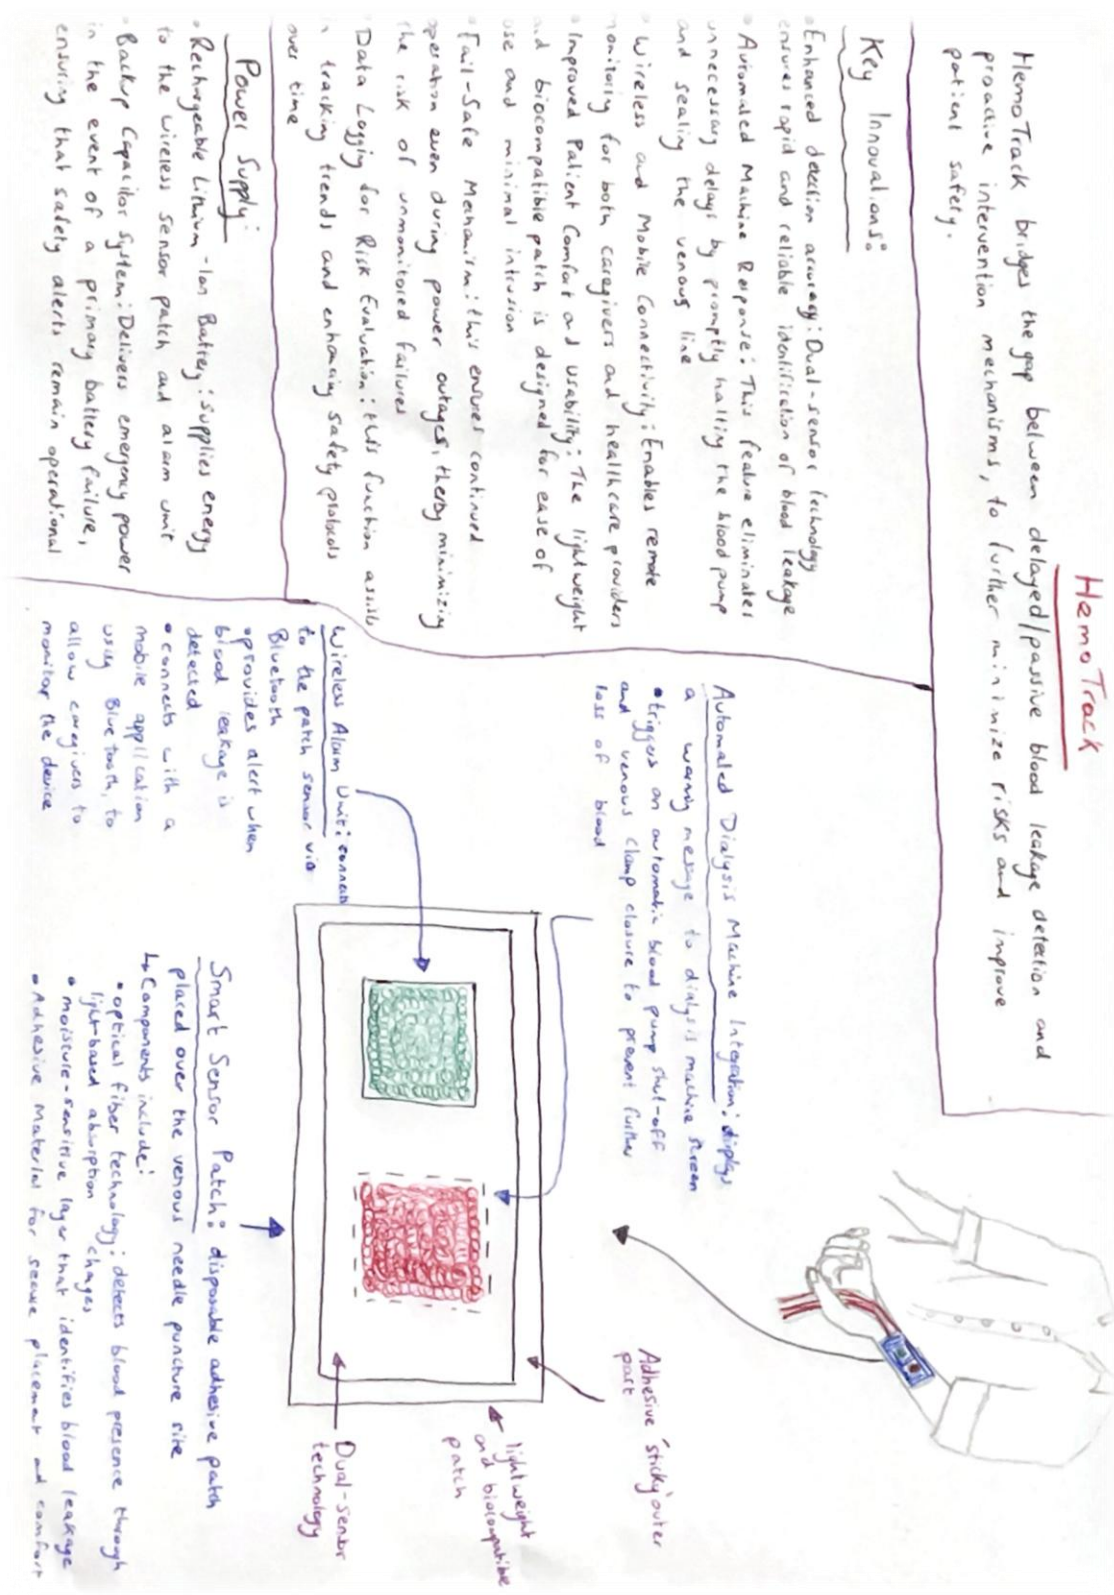 HemoTrack
HemoTrack bridges the gap between delayed/passive blood leakage detection and
proactive intervention mechanisms, to further minimize risks and improve
patient safety.
Key Innovations:
Enhanced detection accuracy: Dual-sensor technology
ensures rapid and reliable identification of blood leakage
• Automated Machine Response: This feature eliminates
unnecessary delays by promptly halting the blood pump
and sealing the venous line
• Wireless and Mobile Connectivity: Enables remote
monitoring for both caregivers and healthcare providers
• Improved Patient Comfort and usability: The lightweight
and biocompatible patch is designed for ease of
use and minimal intrusion
Fail-Safe Mechanism: this ensures continued
operation even during power outages, therby minimizing
the risk of unmonitored failures
Data Logging for Risk Evaluation: this function assists
in tracking trends and enhancing safety protocols
over time
Power Supply:
• Rechargeable Lithium-Ion Battery: supplies energy
to the wireless sensor patch and alarm unit
• Backup Capacitor System: Delivers emergency power
in the event of a primary battery failure,
ensuring that safety alerts remain operational
Automated Dialysis Machine Integration: displays
a warning message to dialysis machine screen
• triggers an automatic blood pump shut-off
and venous clamp closure to prevent further
loss of blood
Wireless Alarm Unit: connects
to the patch sensor via
Bluetooth
• provides alert when
blood leakage is
detected
• connects with a
mobile application
using Bluetooth, to
allow caregivers to
monitor the device
Adhesive 'sticky' outer
part
lightweight
and biocompatible
patch
Dual-sensor
technology
Smart Sensor Patch: disposable adhesive patch
placed over the venous needle puncture site
↳ Components include:
• optical fiber technology: detects blood presence through
light-based absorption changes
• moisture-sensitive layer that identifies blood leakage
• Adhesive Material for secure placement and comfort